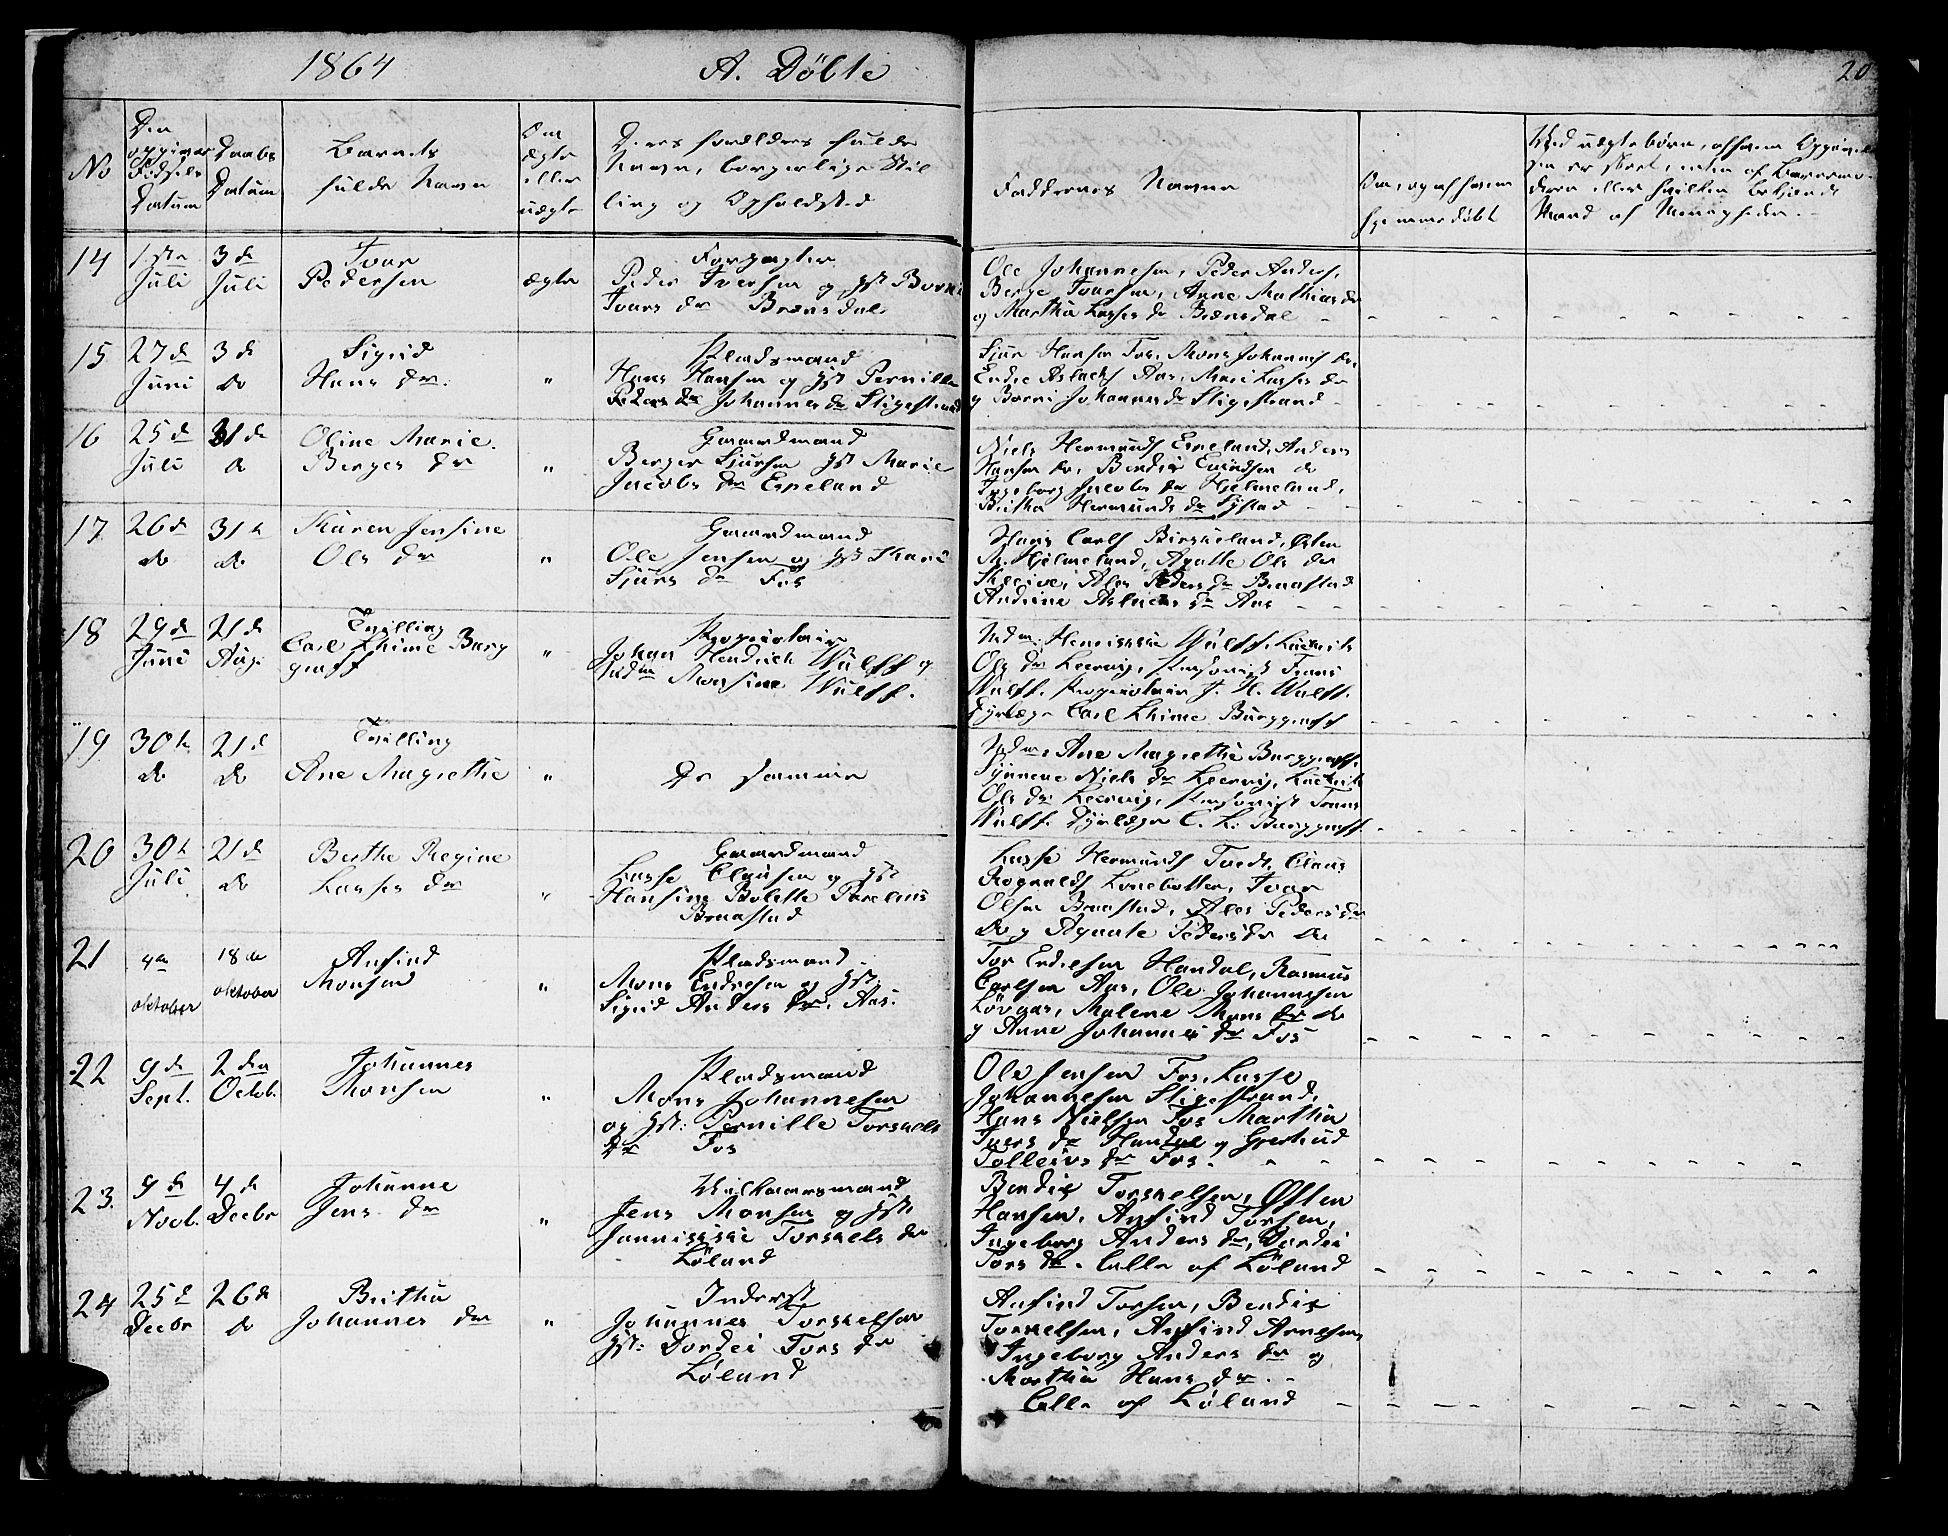 1864
A. Døbte
20
No
Den
opgivne
Fødsels
Datum
Daabs
Datum
Barnets
fulde Navn
Om
ægte
eller
uægte
Deres Forældres fulde
Navn, borgerlige Stil
ling og Opholdsted
Faddernes Navne
Om, og af hvem
hjemmedøbt
Mand af Menigheden.
14
1ste
Juli
3de
Juli
Ivar
Pedersen
ægte
Forpagter
Peder Iversen og Hst
Ivars dr
Ole Johannesen, Peder Anders,
Berge Ivarsen, Anne Mathias dr
og Martha Lasses dr
15
27de
Juni
3de
do
Sigrid
Hans dr.
"
Pladsmand
Hans Hansen og Hst Pernille
Johannes dr Stigestrand
Sjur Hansen Fos, Mons Johannes do,
Endre Aslachs Aas, Mari Lasses dr
og Johannes dr Stigestrand
16
25de
Juli
31de
do
Oline Marie
Berges dr
"
Gaardmand
Berger Sjursen Hst Marie
Jacobs dr Espeland
Niels Hermunds Espeland, Anders
Hansen do, Bendix do
Ingeborg Jacobs dr Hjelmeland,
Britha Hermunds dr Systad
17
26de
do
31te
do
Karen Jensine
Ols dr
"
Gaardmand
Ole Jensen og Hst Kari
Sjurs dr Fos
Hans Carls Birkeland, Østen
M. Hjelmeland, Agatte Ols dr
Ales Peders dr Braastad
Andrine Aslachs dr Aas
18
29de
Juni
21de
Aug.
Tvilling
Carl Thime Burg
graff
"
Proprietair
Johan Hendrich Wulff og
Monsine Wulff.
Henrikke Wulff, Cathrik
Ols dr Leervig, Frans
Wulff. Proprietair J. H. Wulff.
Dyrlæge Carl Thime Burggraff
19
30te
do
21de
do
Tvilling
Ane Magrethe
"
De samme
Ane Magrethe Burggraff.
Synneve Niels dr Leervig,
Ols dr Leervig, Frans
Wulff. Dyrlæge C. T. Burggraff
20
30te
Juli
21de
do
Berthe Regine
Lasses dr
"
Gaardmand
Lasse Clausen og Hst
Hansine Bolette
Braastad
Lasse Hermunds Tvedt, Claus
Rognalds Lonebotten, Ivar
Olsen Braastad, Ales Peders dr
do og Agaate Peders dr do
21
4de
oktober
18de
oktober
Anfind
Monsen
"
Pladsmand
Mons Endresen og Hst.
Sigrid Anders dr. Aas.
Tor Endresen Handal, Rasmus
Carlsen Aas, Ole Johannesen
Løvgar, Malene Mons dr do
og Anne Johannes dr Fos
22
9de
Sept.
2den
Octob.
Johannes
Monsen
"
Pladsmand
Mons Johannesen
og Hst: Pernille Torskels
dr Fos
Ole Jensen Fos, Lasse
Johannesen Stigestrand,
Hans Nielsen Fos Martha
Ivers dr Handal og Gjertrud
Tolleivs dr Fos.
23.
9de
Novb.
4de
Decbr
Johanne
Jens dr
"
Vilkaarsmand
Jens Monsen og Hst.
Jannikke Torskels dr
Løland
Bendix Torskelsen, Østen
Hansen, Anfind Torsen,
Ingeborg Anders dr, Dordei
Tors dr. alle af Løland
24
25de
Decbr
26de
do
Britha
Johannes dr
"
Inderst
Johannes Torskelsen
Hst: Dordei Tors dr
Løland
Anfind Torsen, Bendix
Torskelsen, Anfind Arnesen,
Ingeborg Anders dr og
Martha Hans dr.
alle af Løland